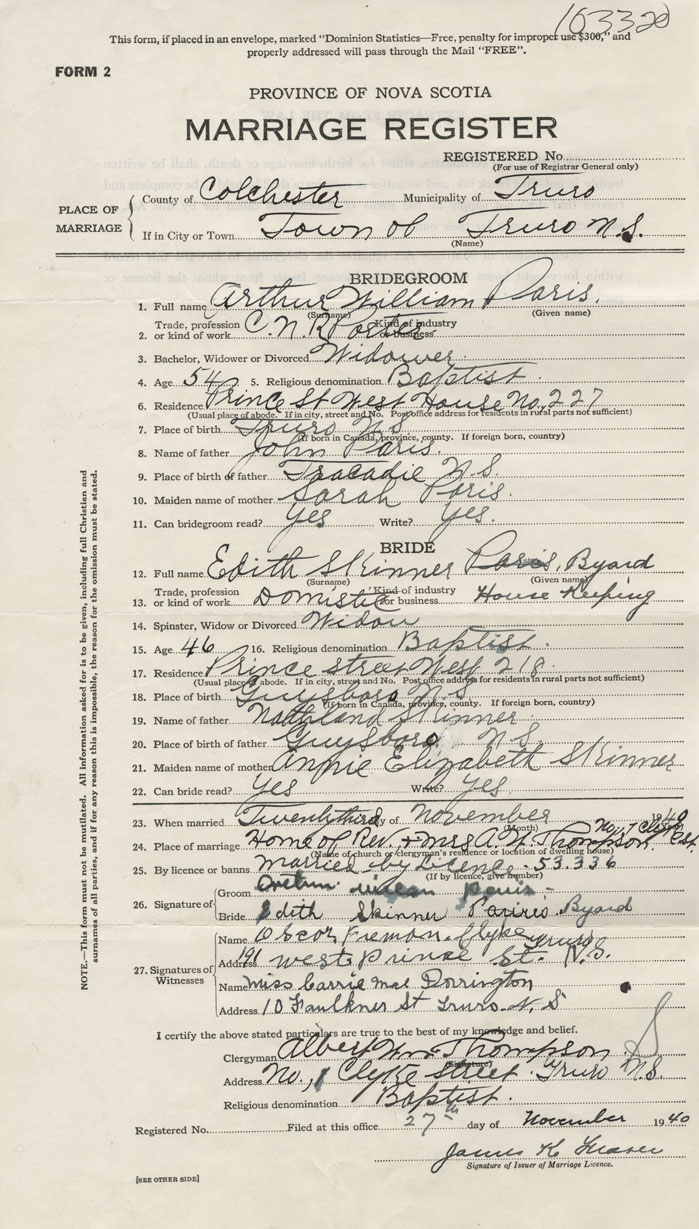 103320
This form, if placed in an envelope, marked "Dominion Statistics—Free, penalty for improper use $300," and
properly addressed will pass through the Mail "FREE".
FORM 2
PROVINCE OF NOVA SCOTIA
MARRIAGE REGISTER
REGISTERED No.
(For use of Registrar General only)
PLACE OF MARRIAGE
County of Colchester Municipality of Truro
If in City or Town Town of Truro N.S.
(Name)
BRIDEGROOM
1. Full name Arthur William Paris.
(Surname) (Given name)
2. Trade, profession or kind of work C.N.R Porter Kind of industry or business
3. Bachelor, Widower or Divorced Widower
4. Age 54 5. Religious denomination Baptist
6. Residence Prince St West House No, 227
(Usual place of abode. If in city, street and No. Post office address for residents in rural parts not sufficient)
7. Place of birth Truro N.S.
(If born in Canada, province, county. If foreign born, country)
8. Name of father John Paris.
9. Place of birth of father Tracadie N.S.
10. Maiden name of mother Sarah Paris.
11. Can bridegroom read? Yes Write? Yes.
BRIDE
12. Full name Edith Skinner Paris, Byard
(Surname) (Given name)
13. Trade, profession or kind of work Domistic Kind of industry or business House Keeping
14. Spinster, Widow or Divorced Widow
15. Age 46 16. Religious denomination Baptist.
17. Residence Prince street West 218
(Usual place of abode. If in city, street and No. Post office address for residents in rural parts not sufficient)
18. Place of birth Guysboro N.S
(If born in Canada, province, county. If foreign born, country)
19. Name of father Skinner
20. Place of birth of father Guysboro N.S.
21. Maiden name of mother Annie Elizabeth Skinner
22. Can bride read? Yes Write? Yes.
23. When married Twentythird day of November 1940
(Month)
24. Place of marriage Home of Rev. + Mrs A. W. Thompson. No, 7 Clyke
(Name of church or clergyman's residence or location of dwelling house)
25. By licence or banns Married by Licence - 53.336
(If by licence, give number)
26. Signature of
Groom
Bride Edith Skinner Byard
27. Signatures of Witnesses
Name Oscar Fremon Clyke
Address 191 west Prince St. Truro N.S.
Name miss Carrie mae Dorrington
Address 10 Faulkner St Truro N. S
I certify the above stated particulars are true to the best of my knowledge and belief.
Clergyman Albert Wm Thompson
(Signature)
Address No, Clyke Street Truro N.S.
Religious denomination Baptist.
Registered No. Filed at this office 27th day of November 1940
James K Fraser
Signature of Issuer of Marriage Licence.
[SEE OTHER SIDE]
NOTE.—This form must not be mutilated. All information asked for is to be given, including full Christian and
surnames of all parties, and if for any reason this is impossible, the reason for the omission must be stated.